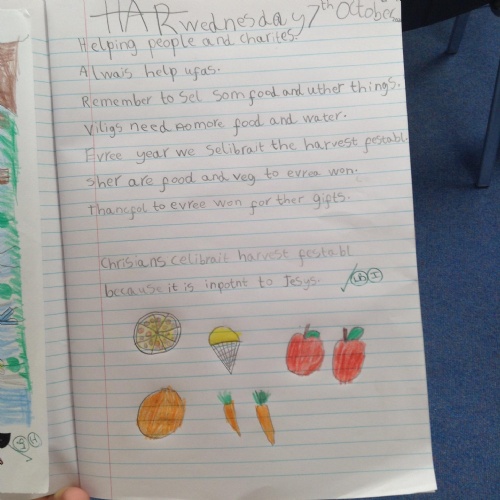 HAR wednesday 7th October
Helping people and charites.
Alwais help ufas.
Remember to sel som food and uther things.
Viligs need more food and water.
Evree year we selibrait the harvest festabl.
Sher are food and veg to evree won.
Thancfol to evree won for ther gifts.
Chrisians celibrait harvest festabl
because it is inpotnt to Jesys.
I